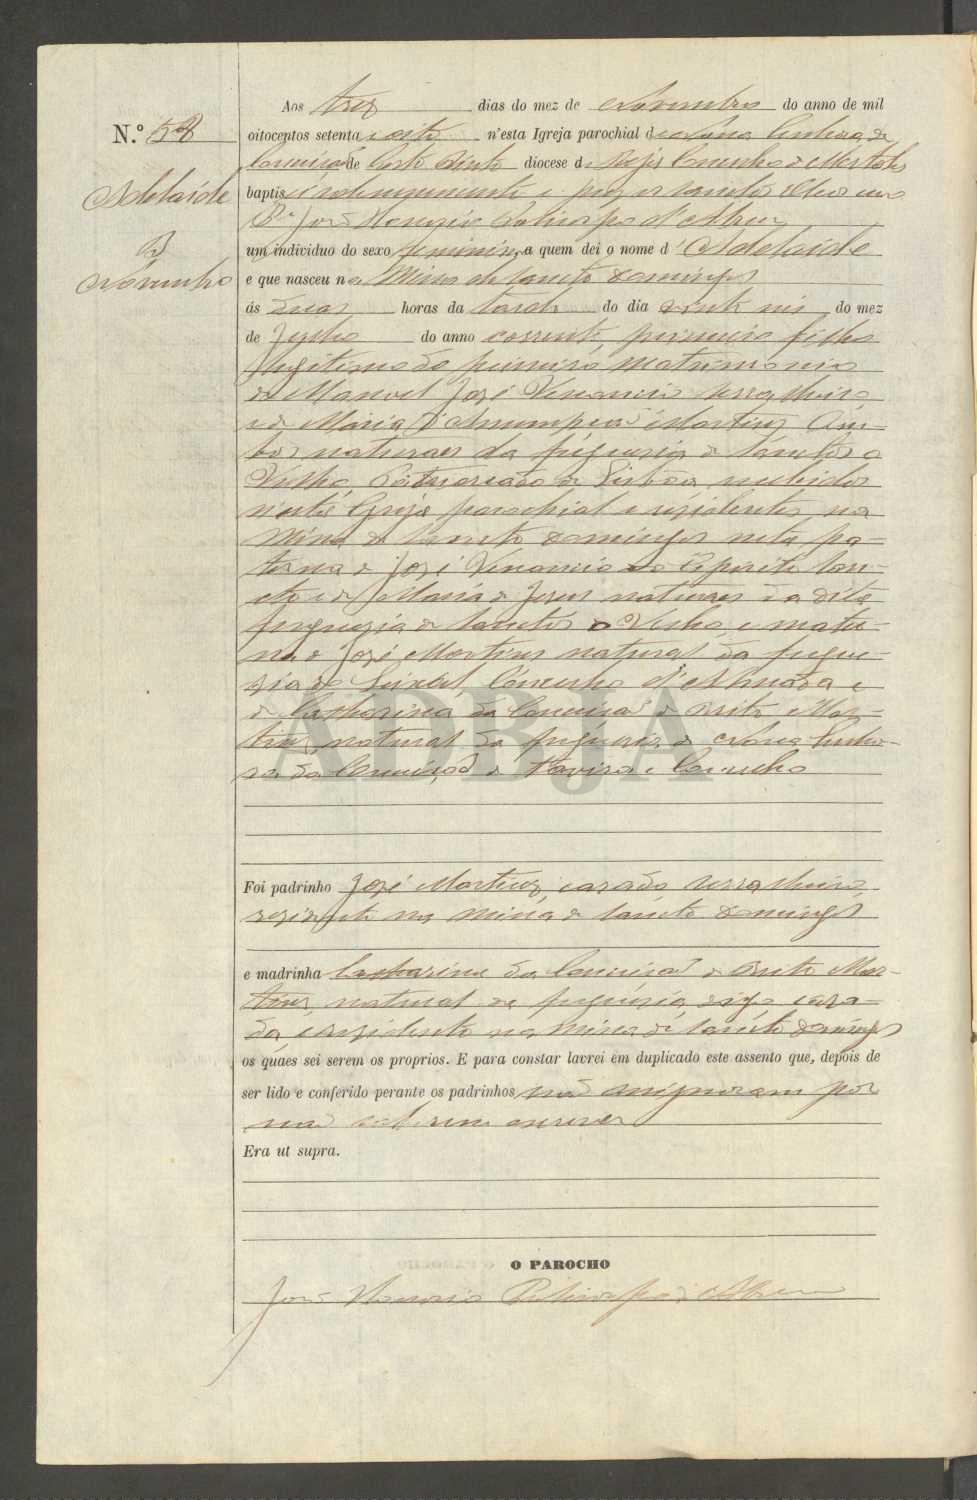 Aos tres dias do mez de Novembro do anno de mil
N.º 58
oitocentos setenta e oito n'esta Igreja parochial de Nossa Senhora da
Conceição de Corte Pinto diocese de Beja Concelho de Mertola
Adelaide
baptisei solemnemente e puz os sanctos oleos eu o
P.e João Honorio d'Abreu
um individuo do sexo feminino, a quem dei o nome d'Adelaide
3
Novembro
e que nasceu na Mina de Sancto Domingos
ás duas horas da tarde do dia vinte do mez
de Julho do anno corrente, primeiro filho
legitimo do primeiro matrimonio
de Manoel José Venancio serralheiro
e de Maria d'Assumpção Martins Am-
bos naturaes da freguesia de Sanctos o
Velho, Patriarcado de Lisboa recebidos
nesta Igreja parochial e residentes na
Mina de Sancto Domingos neta pa-
terna de José Venancio do Espirito San-
cto e de Maria de Jesus naturaes da dita
freguezia de Sanctos o Velho, e mater-
na de José Martins natural da fregue-
sia do Seixal Concelho d'Almada e
de Catharina da Conceição e Brito Mar-
tins, natural da freguesia de Nossa Senho-
ra da Conceição de Tavira e Concelho
Foi padrinho José Martins, casado serralheiro
residente na Mina de Sancto Domingos
e madrinha Catharina da Conceição e Brito Mar-
tins, natural da freguesia digo casa-
da, e residente na Mina de Sancto Domingos
os quaes sei serem os proprios. E para constar lavrei em duplicado este assento que, depois de
ser lido e conferido perante os padrinhos não assignaram por
não saberem escrever
Era ut supra.
O PAROCHO
João Honorio d'Abreu
ADBJA